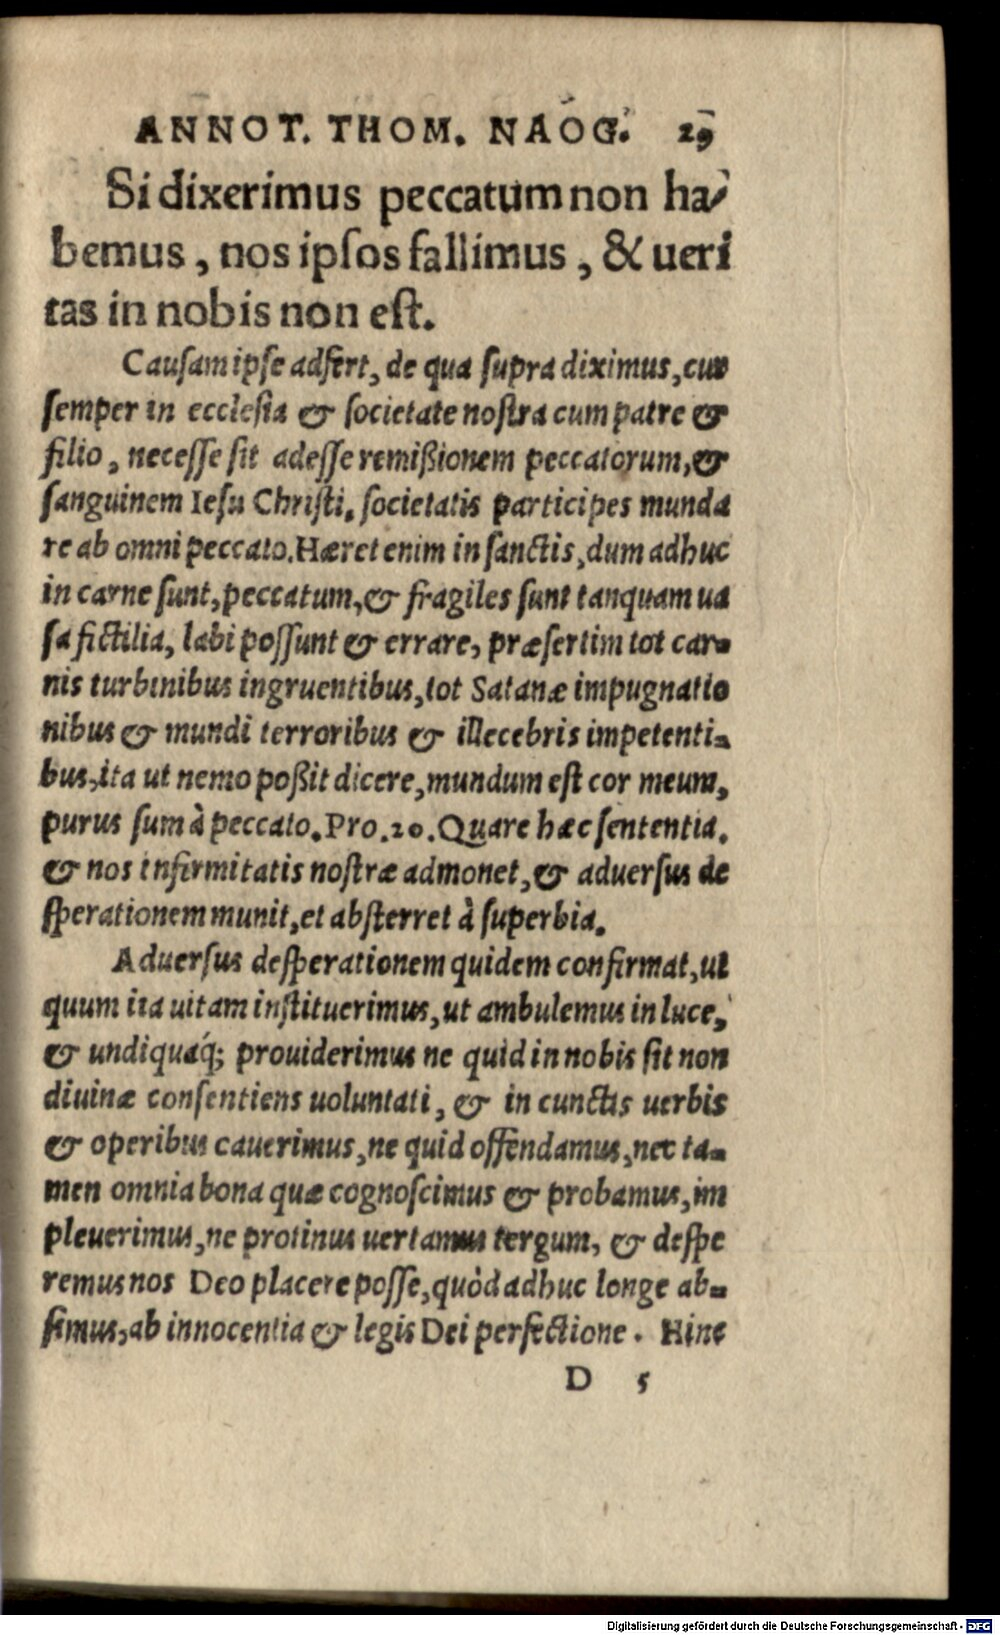 ANNOT. THOM. NAOG. 29
Si dixerimus peccatum non ha-
bemus, nos ipsos fallimus, & ueri
tas in nobis non est.
Causam ipse adfert, de qua supra diximus, cur
semper in ecclesia & societate nostra cum patre &
filio, necesse sit adesse remißionem peccatorum, &
sanguinem Iesu Christi, societatis participes munda
re ab omni peccato. Hæret enim in sanctis, dum adhuc
in carne sunt, peccatum, & fragiles sunt tanquam ua
sa fictilia, labi possunt & errare, præsertim tot car-
nis turbinibus ingruentibus, tot Satanæ impugnatio
nibus & mundi terroribus & illecebris impetenti-
bus, ita ut nemo poßit dicere, mundum est cor meum,
purus sum à peccato. Pro. 20. Quare hæc sententia.
& nos infirmitatis nostræ admonet, & aduersus de
sperationem munit, et absterret à superbia.
Aduersus desperationem quidem confirmat, ut
quum ita uitam instituerimus, ut ambulemus in luce,
& undiquaq́; prouiderimus ne quid in nobis sit non
diuinæ consentiens uoluntati, & in cunctis uerbis
& operibus cauerimus, ne quid offendamus, nec ta-
men omnia bona quæ cognoscimus & probamus, im
pleuerimus, ne protinus uertamus tergum, & despe
remus nos Deo placere posse, quòd adhuc longe ab-
simus, ab innocentia & legis Dei perfectione. Hinc
D 5
Digitalisierung gefördert durch die Deutsche Forschungsgemeinschaft - DFG